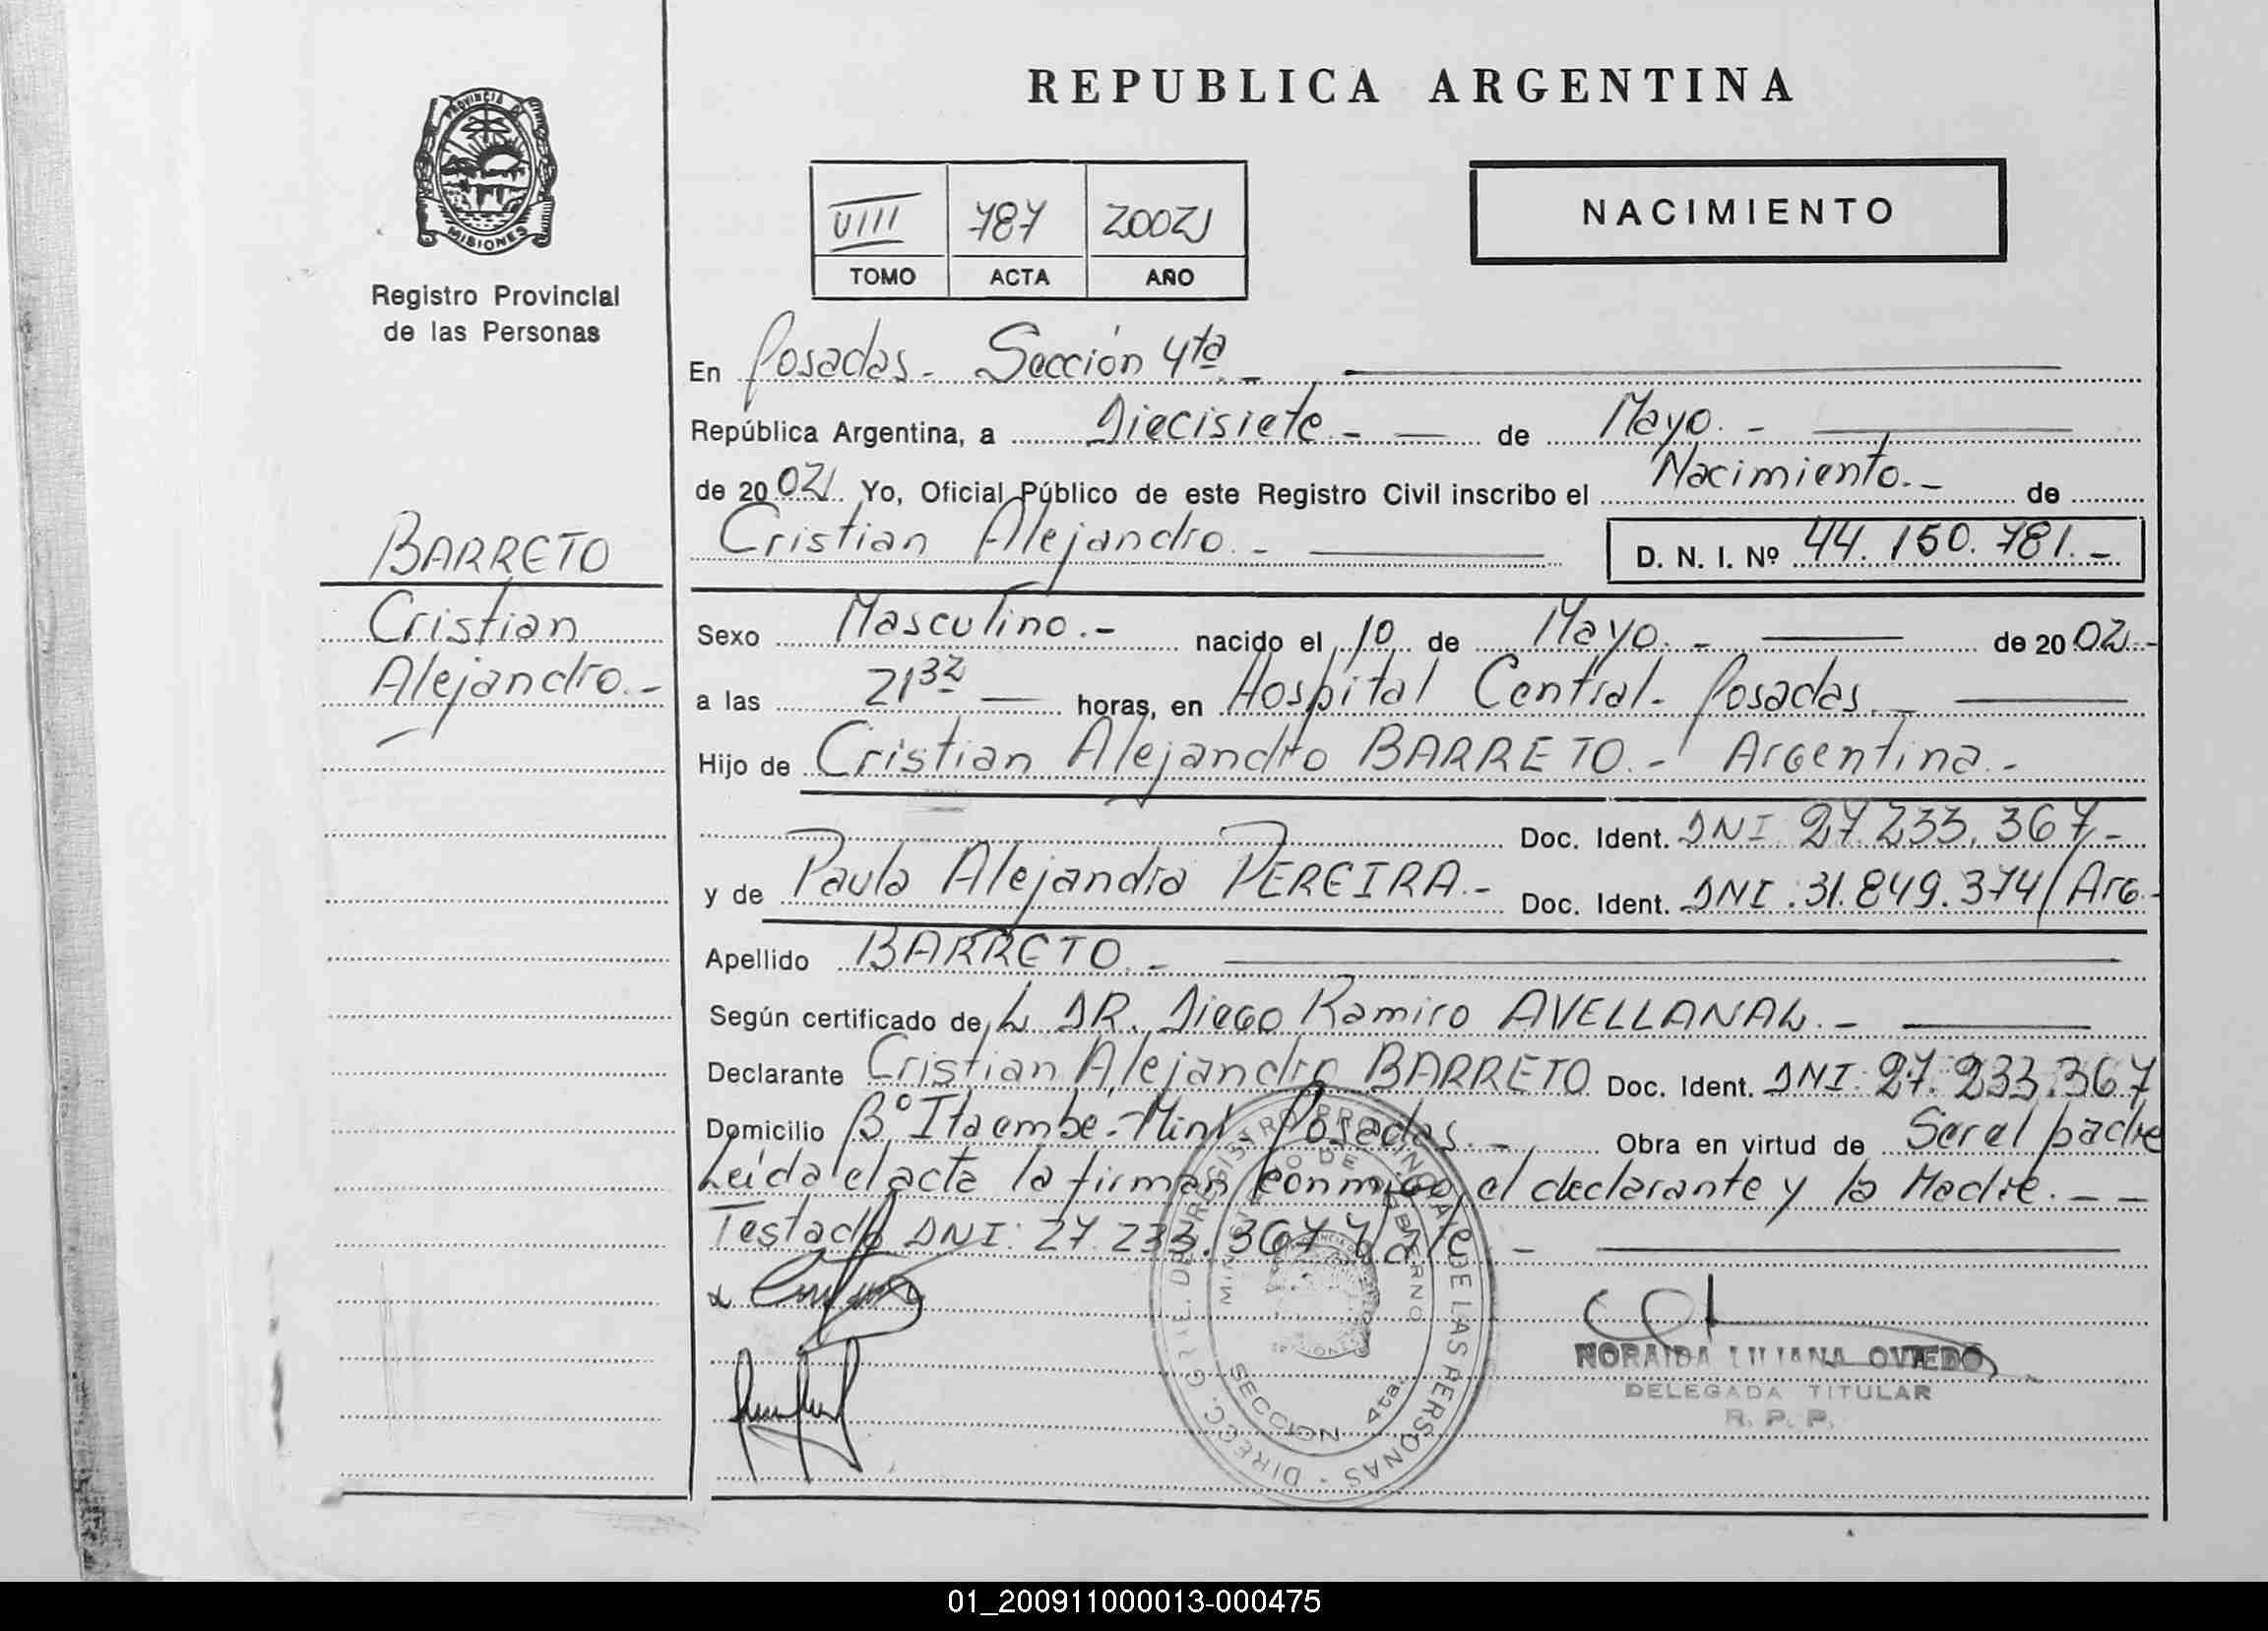 REPUBLICA ARGENTINA
PROVINCIA DE
MISIONES
Registro Provincial
de las Personas
VIII 787 2002
TOMO ACTA AÑO
NACIMIENTO
En Posadas.- Sección 4ta.-
República Argentina, a Diecisiete.- de Mayo.-
de 2002 Yo, Oficial Público de este Registro Civil inscribo el Nacimiento.- de
Cristian Alejandro.- D. N. I. Nº 44.150.781.-
BARRETO
Cristian
Alejandro.-
Sexo Masculino.- nacido el 10 de Mayo.- de 2002.-
a las 21 32 horas, en Hospital Central- Posadas.-
Hijo de Cristian Alejandro BARRETO.- Argentina.-
Doc. Ident. DNI 27.233.367.-
y de Paula Alejandra PEREIRA.- Doc. Ident. DNI:31.849.374/Arg.-
Apellido BARRETO.-
Según certificado de L DR. Diego Ramiro AVELLANAL.-
Declarante Cristian Alejandro BARRETO Doc. Ident. DNI: 27.233.367
Domicilio Bº Itaembe-Mini- Posadas.- Obra en virtud de Ser el padre
Leida el acta la firman conmigo, el declarante y la Madre.--
Testado DNI: 27.233.367 Vale.-
DIRECC. GRAL. DEL REGISTRO PROVINCIAL DE LAS PERSONAS -
MINISTERIO DE GOBIERNO
SECCION 4ta.
NORAIDA LILIANA OVIEDO
DELEGADA TITULAR
R. P. P.
01_200911000013-000475